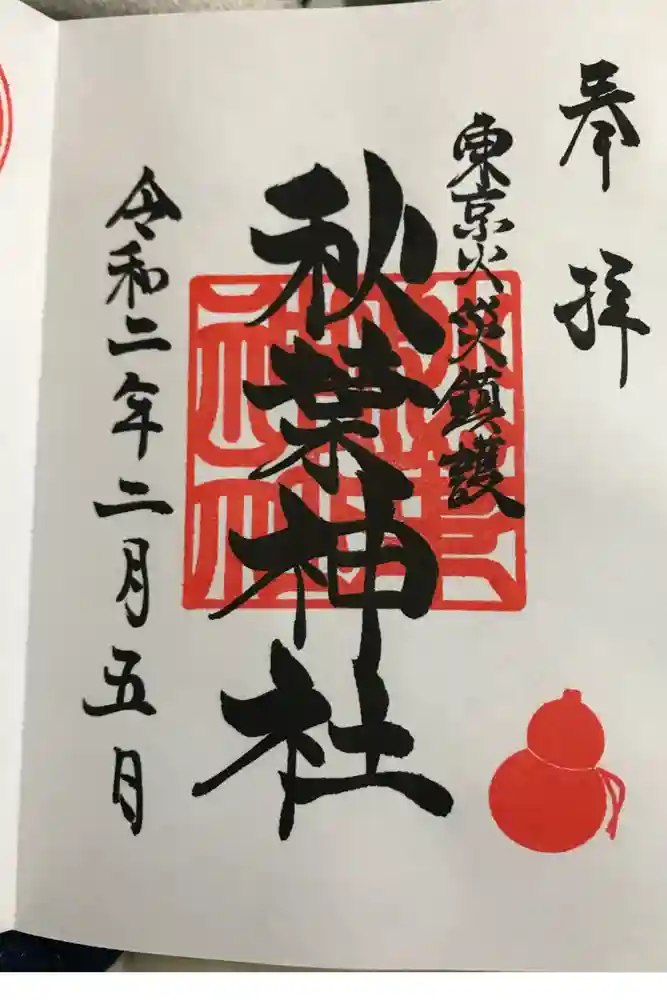 奉拝
東京火災鎮護
秋葉神社
令和二年二月五日